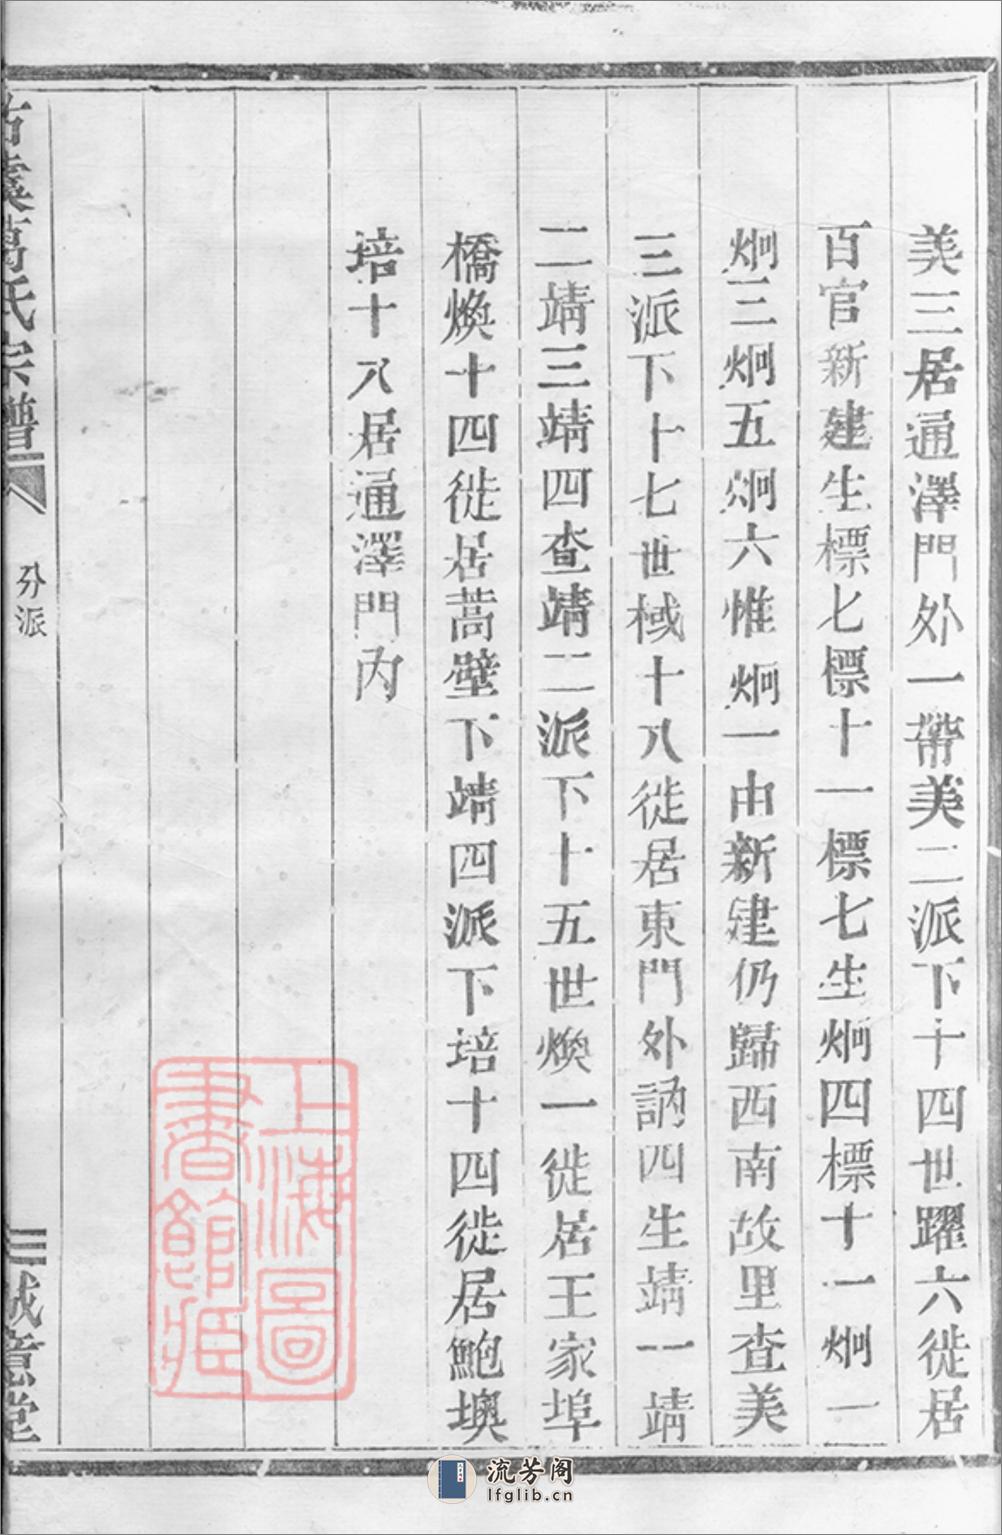 美三居通澤門外一帶美二派下十四世躍六徙居
百官新建生標七標十一標七生炯四標十一炯一
炯三炯五炯六惟炯一由新建仍歸西南故里查美
三派下十七世棫十八徙居東門外訥四生靖一靖
二靖三靖四查靖二派下十五世煥一徙居王家埠
橋煥十四徙居蒿壁下靖四派下培十四徙居鮑墺
培十八居通澤門內
古虞葛氏宗譜
分派
三
誠意堂
上海圖書館藏
流芳阁
lfglib.cn